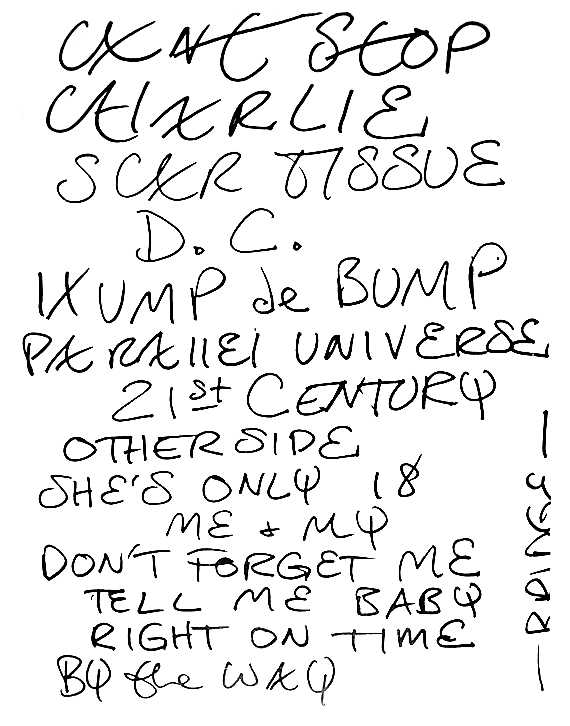 CANT STOP
CHARLIE
SCAR TISSUE
D.C.
HUMP de BUMP
PARAllEl UNIVERSE
21st CENTURY
OTHERSIDE
SHE'S ONLY 18
ME + MY
DON'T FORGET ME
TELL ME BABY
RIGHT ON TIME
BY the WAY